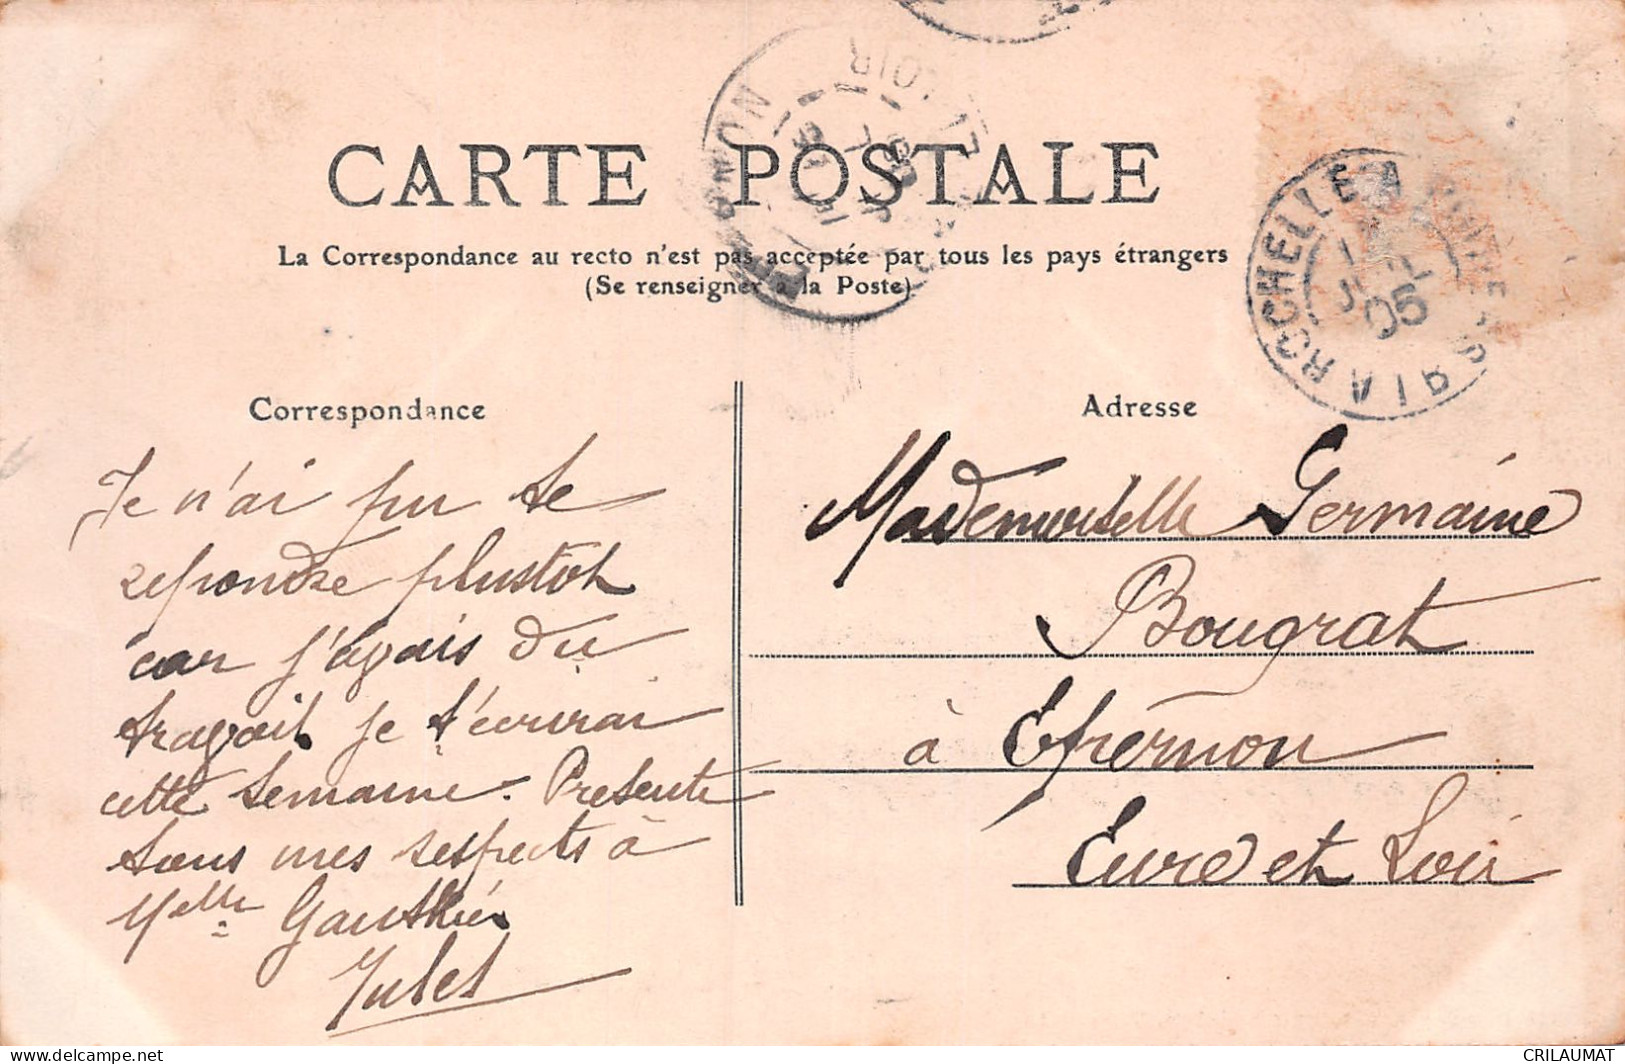 CARTE POSTALE
La Correspondance au recto n'est pas acceptée par tous les pays étrangers
(Se renseigner à la Poste)
Correspondance
Je n'ai pu te
repondre plustot
car j'avais du
travail je t'ecrirai
cette semaine. Presente
tous mes respects à
Melle Gauthier
Jules
Adresse
Mademoiselle Germaine
Bougrat
à Epernon
Eure et Loir
LA ROCHELLE A
05
LOIR
delcampe.net
CRILAUMAT